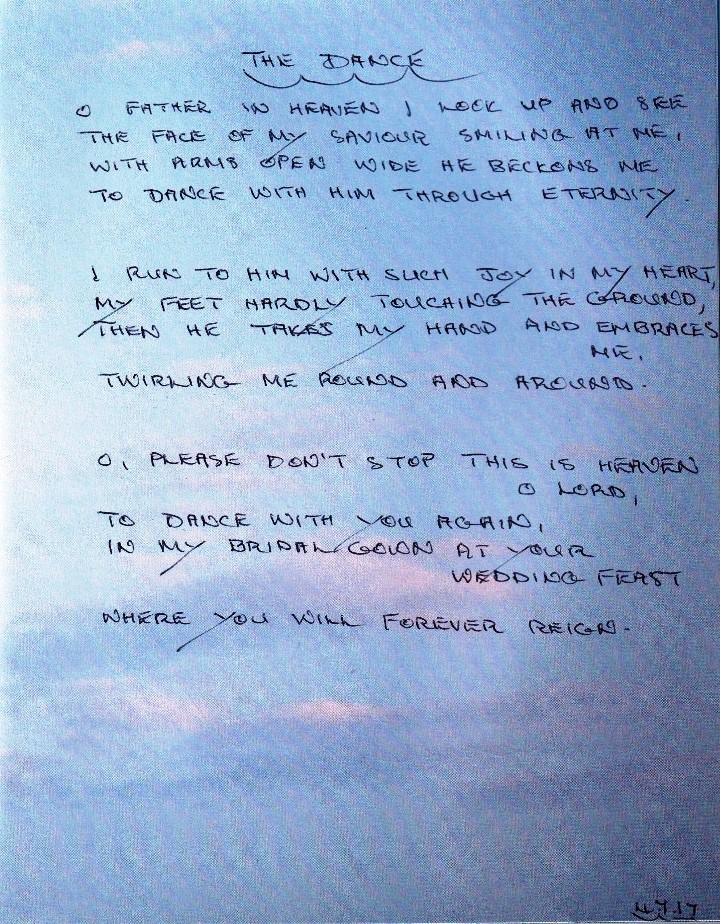 THE DANCE
O FATHER IN HEAVEN I LOOK UP AND SEE
THE FACE OF MY SAVIOUR SMILING AT ME,
WITH ARMS OPEN WIDE HE BECKONS ME
TO DANCE WITH HIM THROUGH ETERNITY.
I RUN TO HIM WITH SUCH JOY IN MY HEART,
MY FEET HARDLY TOUCHING THE GROUND,
THEN HE TAKES MY HAND AND EMBRACES
ME,
TWIRLING ME ROUND AND AROUND.
O, PLEASE DON'T STOP THIS IS HEAVEN
O LORD,
TO DANCE WITH YOU AGAIN,
IN MY BRIDAL GOWN AT YOUR
WEDDING FEAST
WHERE YOU WILL FOREVER REIGN.